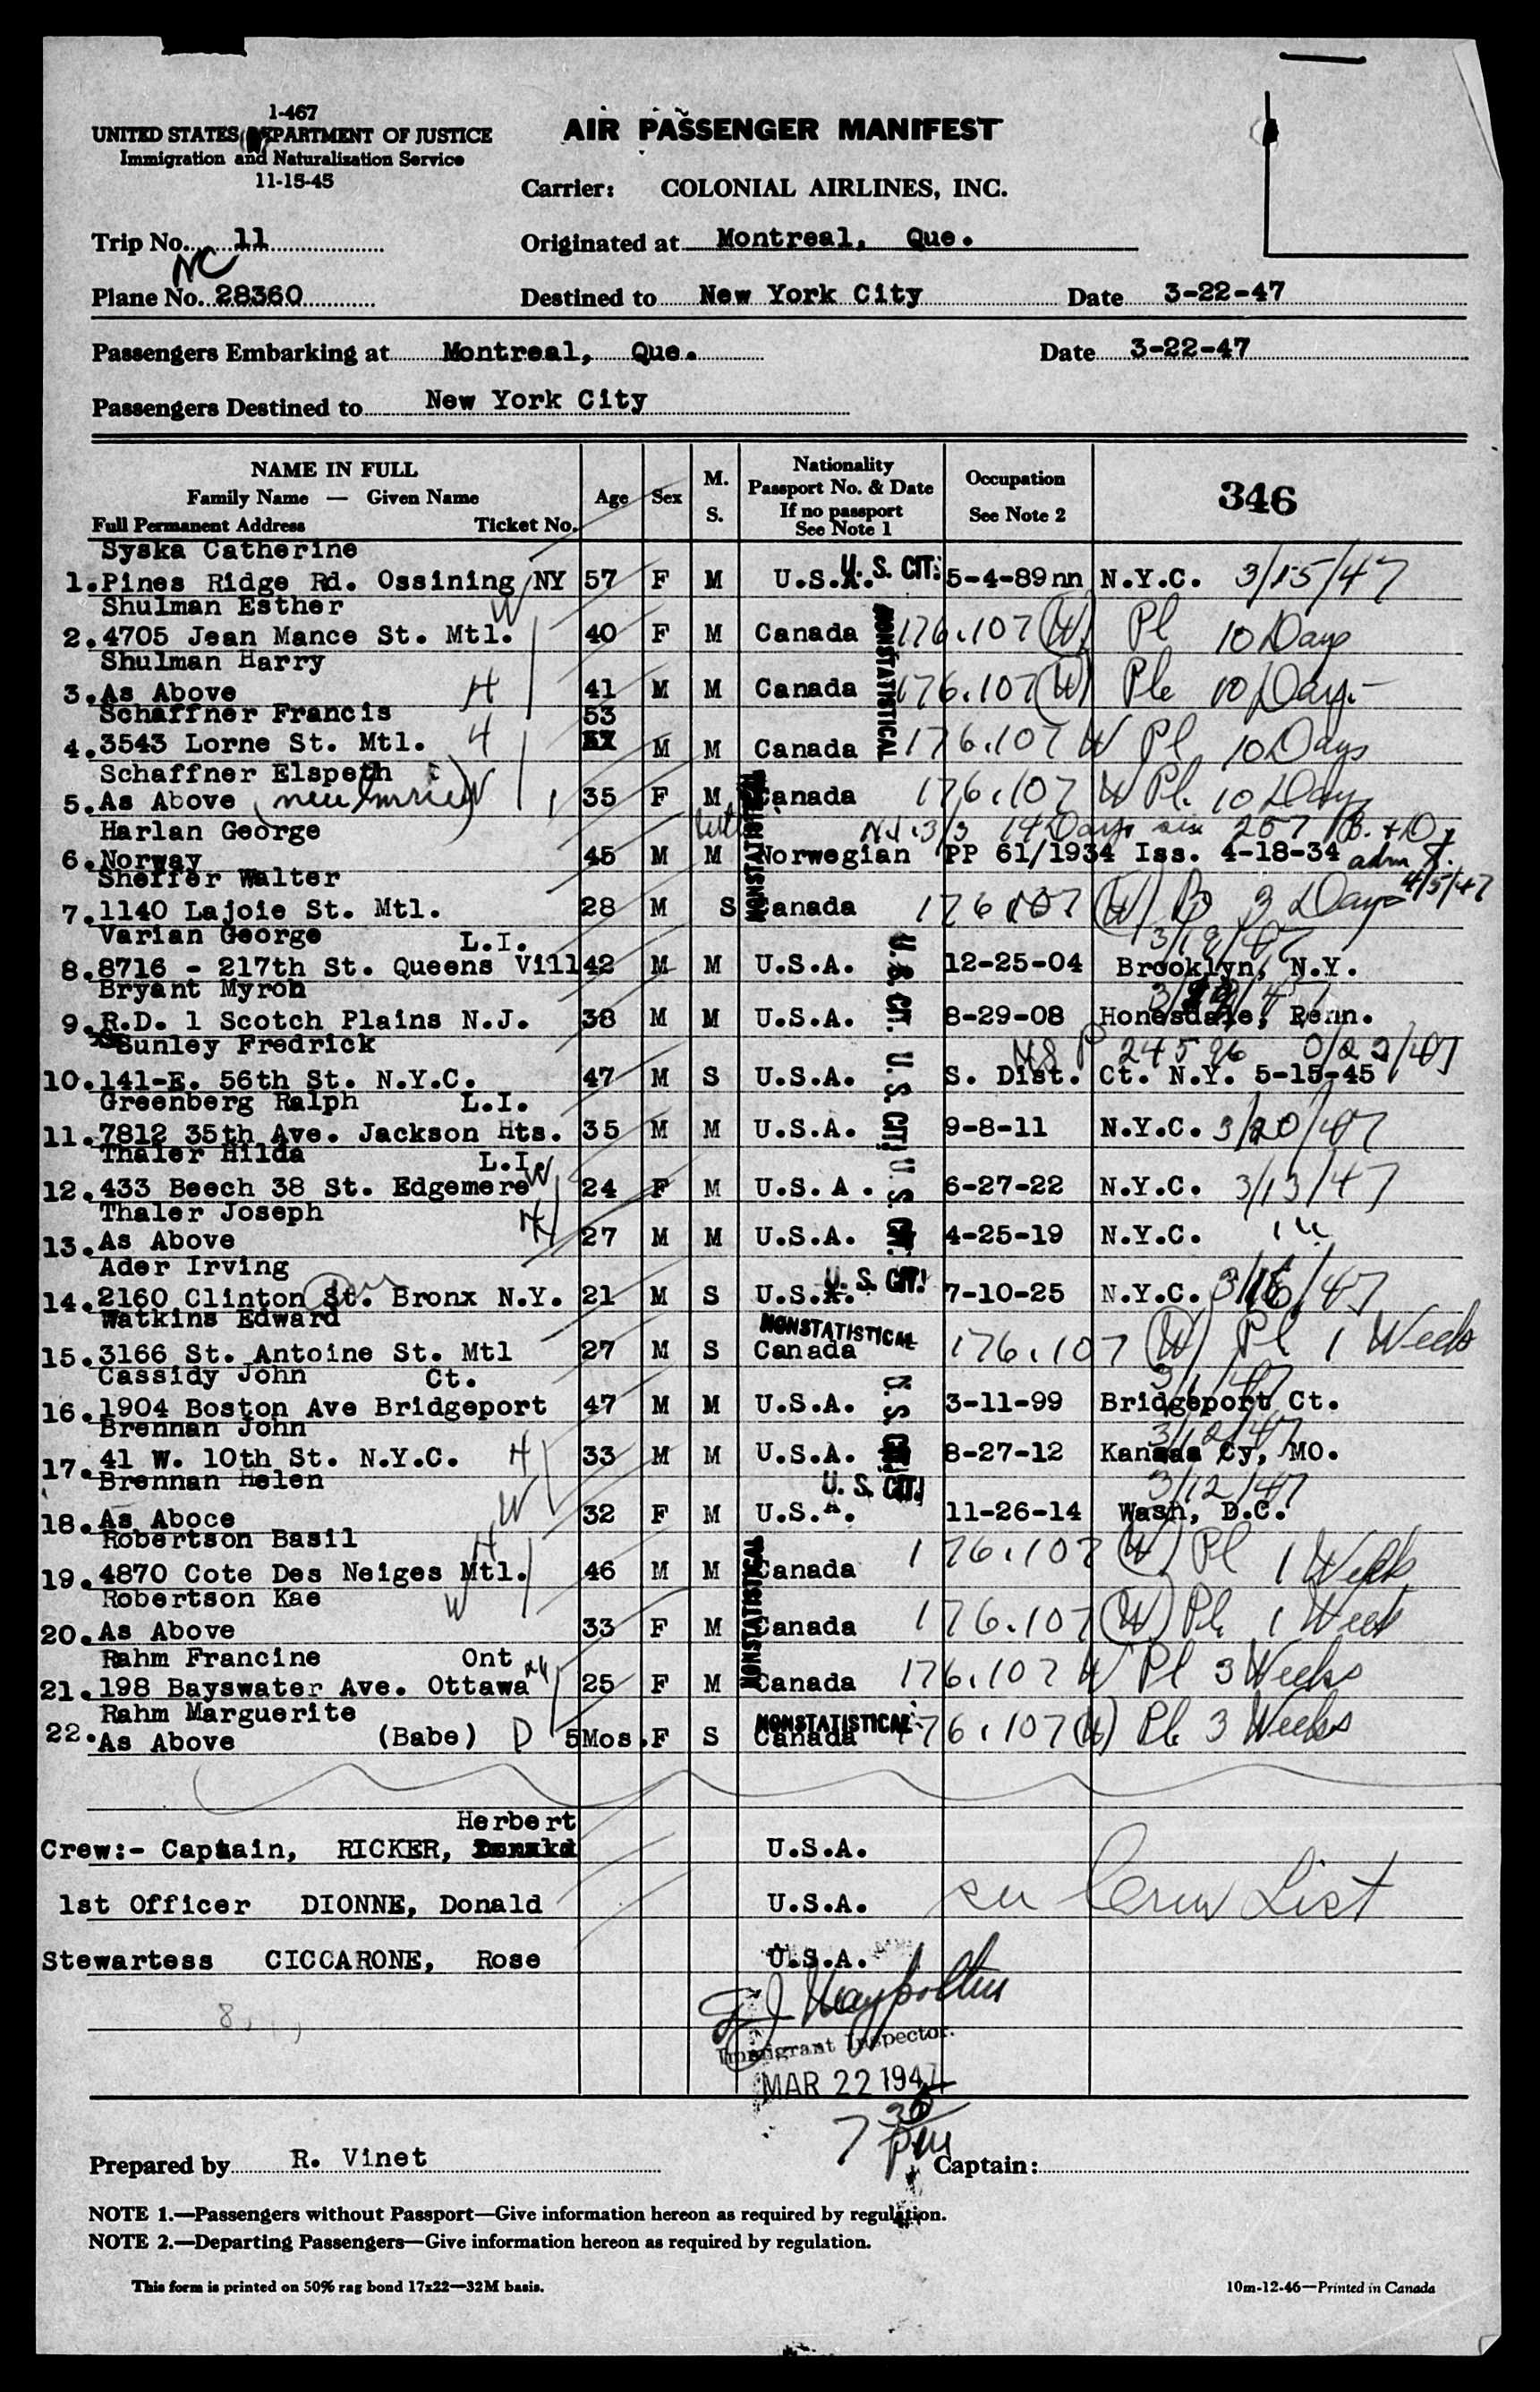 1-467
UNITED STATES DEPARTMENT OF JUSTICE
Immigration and Naturalization Service
11-15-45
AIR PASSENGER MANIFEST
Carrier: COLONIAL AIRLINES, INC.
Trip No. 11 Originated at Montreal, Que.
NC
Plane No. 28360 Destined to New York City Date 3-22-47
Passengers Embarking at Montreal, Que. Date 3-22-47
Passengers Destined to New York City
NAME IN FULL
Family Name — Given Name
Full Permanent Address Ticket No. Age Sex M. S. Nationality Passport No. & Date If no passport See Note 1 Occupation See Note 2 346
Syska Catherine
1. Pines Ridge Rd. Ossining NY 57 F M U.S.A. U. S. CIT. 5-4-89nn N.Y.C. 3/15/47
Shulman Esther W
2. 4705 Jean Mance St. Mtl. 40 F M Canada 176.107 (W) Pl 10 Days
Shulman Harry
3. As Above H 41 M M Canada 176.107 (W) Ple 10 Days
NONSTATISTICAL
Schaffner Francis 53
4. 3543 Lorne St. Mtl. H XX M M Canada 176.107 W Pl 10 Days
Schaffner Elspeth
5. As Above W 35 F M Canada 176.107 W Pl. 10 Days
Harlan George 14 Days 257
6. Norway 45 M M Norwegian PP 61/1934 Iss. 4-18-34 adm
NONSTATISTICAL
Sheffer Walter 4/5/47
7. 1140 Lajoie St. Mtl. 28 M S Canada 176.107 (W) B 3 Days
Varian George L.I. 3/19/47
8. 8716 - 217th St. Queens Vill 42 M M U.S.A. U. S. CIT. 12-25-04 Brooklyn, N.Y.
Bryant Myron
9. R.D. 1 Scotch Plains N.J. 38 M M U.S.A. 8-29-08 Honesdale, Penn.
Sunley Fredrick US P 24596
10. 141-E. 56th St. N.Y.C. 47 M S U.S.A. U. S. CIT. S. Dist. Ct. N.Y. 5-15-45
Greenberg Ralph L.I.
11. 7812 35th Ave. Jackson Hts. 35 M M U.S.A. 9-8-11 N.Y.C. 3/20/47
Thaler Hilda L.I. W
12. 433 Beech 38 St. Edgemere 24 F M U.S.A. U. S. CIT. 6-27-22 N.Y.C. 3/13/47
Thaler Joseph H
13. As Above 27 M M U.S.A. 4-25-19 N.Y.C. "
Ader Irving
14. 2160 Clinton St. Bronx N.Y. 21 M S U.S.A. U. S. CIT. 7-10-25 N.Y.C. 3/16/47
Watkins Edward NONSTATISTICAL
15. 3166 St. Antoine St. Mtl 27 M S Canada 176.107 (W) Pl 1 Week
Cassidy John Ct. 3/1/47
16. 1904 Boston Ave Bridgeport 47 M M U.S.A. U. S. CIT. 3-11-99 Bridgeport Ct.
Brennan John 3/12/47
17. 41 W. 10th St. N.Y.C. H 33 M M U.S.A. 8-27-12 Kansas Cy, MO.
Brennan Helen U. S. CIT. 3/12/47
18. As Aboce W 32 F M U.S.A. 11-26-14 Wash, D.C.
Robertson Basil H
19. 4870 Cote Des Neiges Mtl. 46 M M Canada 176.107 (W) Pl 1 Week
Robertson Kae W
20. As Above 33 F M Canada 176.107 (W) Pl 1 Week
NONSTATISTICAL
Rahm Francine Ont
21. 198 Bayswater Ave. Ottawa 25 F M Canada 176.107 W Pl 3 Weeks
Rahm Marguerite NONSTATISTICAL
22. As Above (Babe) D 5Mos. F S Canada 176.107 (W) Pl 3 Weeks
Herbert
Crew:- Captain, RICKER, Donald U.S.A.
1st Officer DIONNE, Donald U.S.A. see Crew List
Stewartess CICCARONE, Rose U.S.A.
Immigrant Inspector.
MAR 22 1947
7 30 pm
Prepared by R. Vinet Captain:
NOTE 1.—Passengers without Passport—Give information hereon as required by regulation.
NOTE 2.—Departing Passengers—Give information hereon as required by regulation.
This form is printed on 50% rag bond 17x22—32M basis. 10m-12-46—Printed in Canada